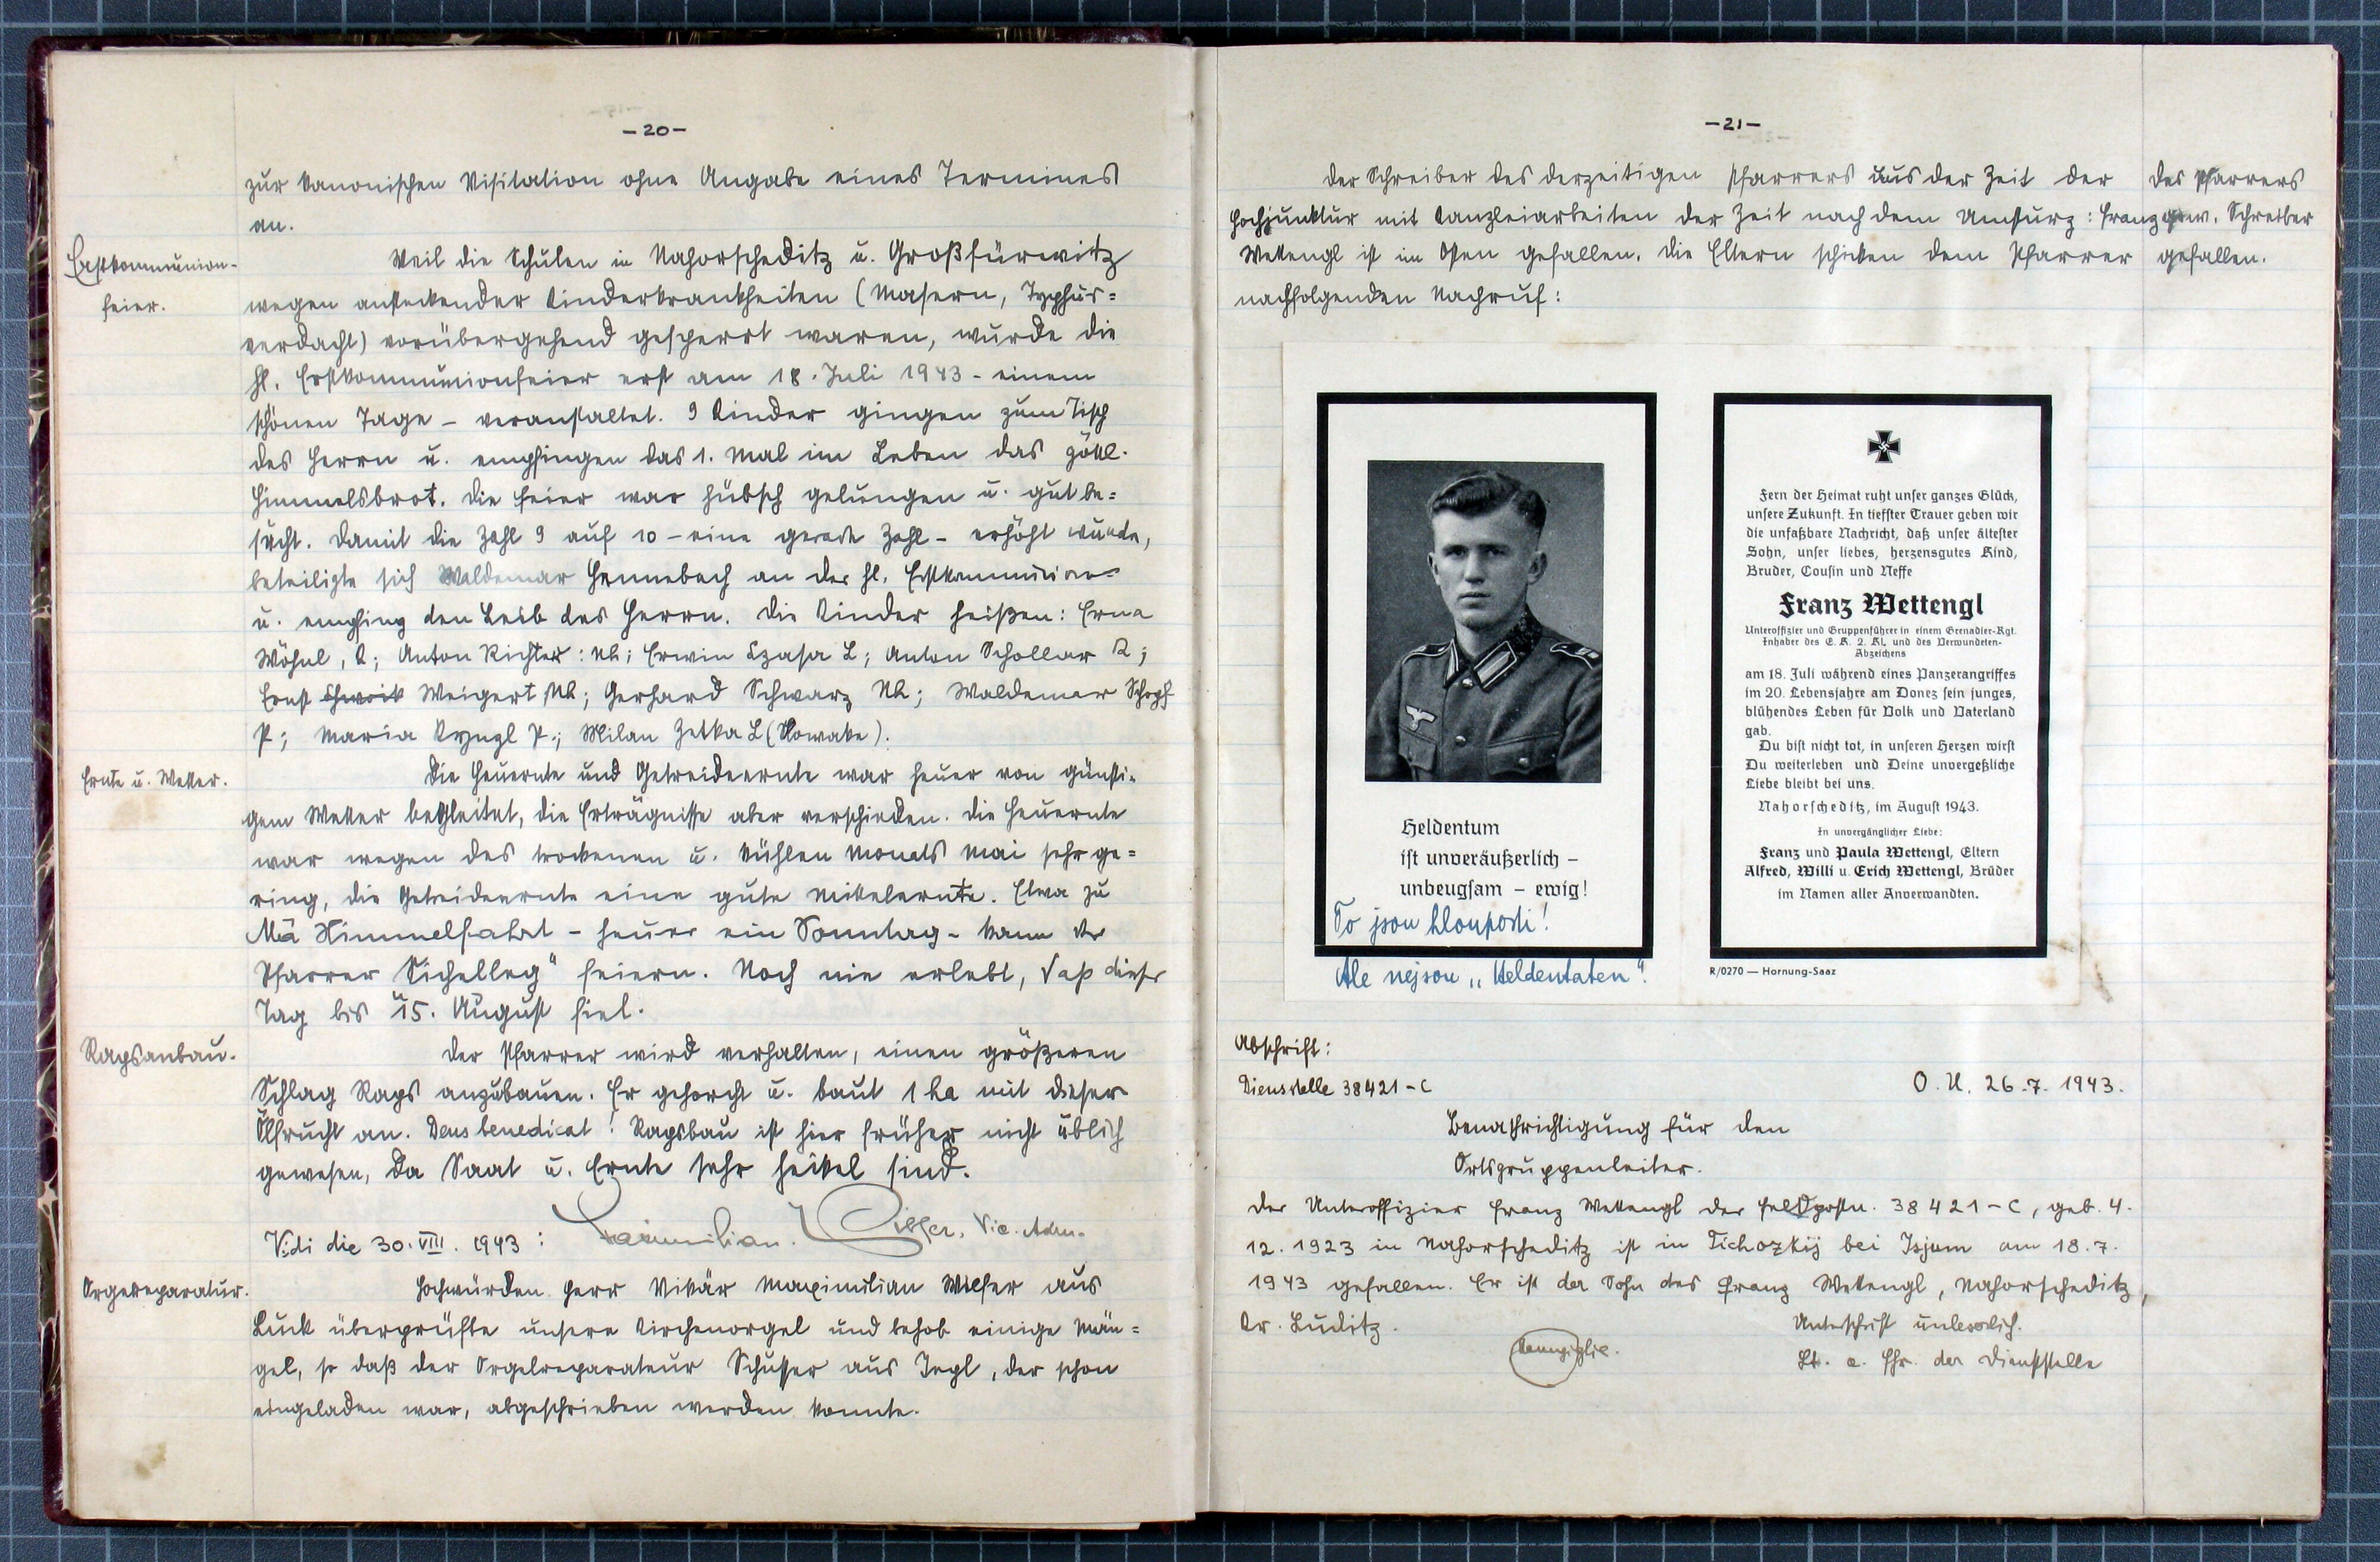 -20-
zur kanonischen Visitation ohne Angabe eines Termines
an.
Erstkommunion-
feier.
Weil die Schulen in Nahorscheditz u. Großfürwitz
wegen ansteckender Kinderkrankheiten (Masern, Typhus=
verdacht) vorübergehend gesperrt waren, wurde die
hl. Erstkommunionfeier erst am 18. Juli 1943 - einem
schönen Tage - veranstaltet. 9 Kinder gingen zum Tisch
des Herrn u. empfingen das 1. Mal im Leben das göttl.
Himmelsbrot. Die Feier war hübsch gelungen u. gut be=
sucht. Damit die Zahl 9 auf 10 - eine gerade Zahl - erhöht wurde,
beteiligte sich Waldemar Hennebach an der hl. Erstkommunion
u. empfing den Leib des Herrn. Die Kinder heißen: Erna
Wöhnl, K; Anton Richter: Nh; Erwin Czasa L; Anton Schollar K;
Ernst Weigert Nh; Gerhard Schwarz Nh; Waldemar Schopf
P; Maria Kynzl P.; Milan Zetka L (Slowake).
Ernte u. Wetter.
Die Heuernte und Getreideernte war heuer von günsti-
gem Wetter begleitet, die Erträgnisse aber verschieden. Die Heuernte
war wegen des trockenen u. kühlen Monats Mai sehr ge=
ring, die Getreideernte eine gute Mittelernte. Etwa zu
Mä Himmelfahrt - heuer ein Sonntag - kann der
Pfarrer "Sichelleg" feiern. Noch nie erlebt, daß dieser
Tag bis 15. August fiel.
Rapsanbau.
Der Pfarrer wird verhalten, einen größeren
Schlag Raps anzubauen. Er gehorcht u. baut 1 ha mit dieser
Ölfrucht an. Deus benedicat! Rapsbau ist hier früher nicht üblich
gewesen, da Saat u. Ernte sehr heikel sind.
Vidi die 30. VIII. 1943: Maximilian Wilfer, Vic. Adm.
Orgelreparatur.
Hochwürden Herr Vikär Maximilian Wilfer aus
Luck überprüfte unsere Kirchenorgel und behob einige Män=
gel, so daß der Orgelreparateur Schusser aus Tepl, der schon
eingeladen war, abgeschrieben werden konnte.
-21-
Der Schreiber des derzeitigen Pfarrers aus der Zeit der
Hochjunktur mit Kanzleiarbeiten der Zeit nach dem Umsturz: Franz
Wettengl ist im Osten gefallen. Die Eltern schicken dem Pfarrer
nachfolgenden Nachruf:
Des Pfarrers
gew. Schreiber
gefallen.
Heldentum
ist unveräußerlich –
unbeugsam – ewig!
To jsou hlouposti!
Ale nejsou „Heldentaten".
Fern der Heimat ruht unser ganzes Glück,
unsere Zukunft. In tiefster Trauer geben wir
die unfaßbare Nachricht, daß unser ältester
Sohn, unser liebes, herzensgutes Kind,
Bruder, Cousin und Neffe
Franz Wettengl
Unteroffizier und Gruppenführer in einem Grenadier-Rgt.
Inhaber des E. K. 2. Kl. und des Verwundeten-
Abzeichens
am 18. Juli während eines Panzerangriffes
im 20. Lebensjahre am Donez sein junges,
blühendes Leben für Volk und Vaterland
gab.
Du bist nicht tot, in unseren Herzen wirst
Du weiterleben und Deine unvergeßliche
Liebe bleibt bei uns.
Nahorscheditz, im August 1943.
In unvergänglicher Liebe:
Franz und Paula Wettengl, Eltern
Alfred, Willi u. Erich Wettengl, Brüder
im Namen aller Anverwandten.
R/0270 — Hornung-Saaz
Abschrift:
Dienststelle 38421-C
O. U. 26.7. 1943.
Benachrichtigung für den
Ortsgruppenleiter.
Der Unteroffizier Franz Wettengl der Feldpostn. 38421-C, geb. 4.
12. 1923 in Nahorscheditz ist in Tichozkij bei Isjum am 18.7.
1943 gefallen. Er ist der Sohn des Franz Wettengl, Nahorscheditz,
Kr. Luditz.
Unterschrift unleserlich.
Lt. u. Fhr. der Dienststelle